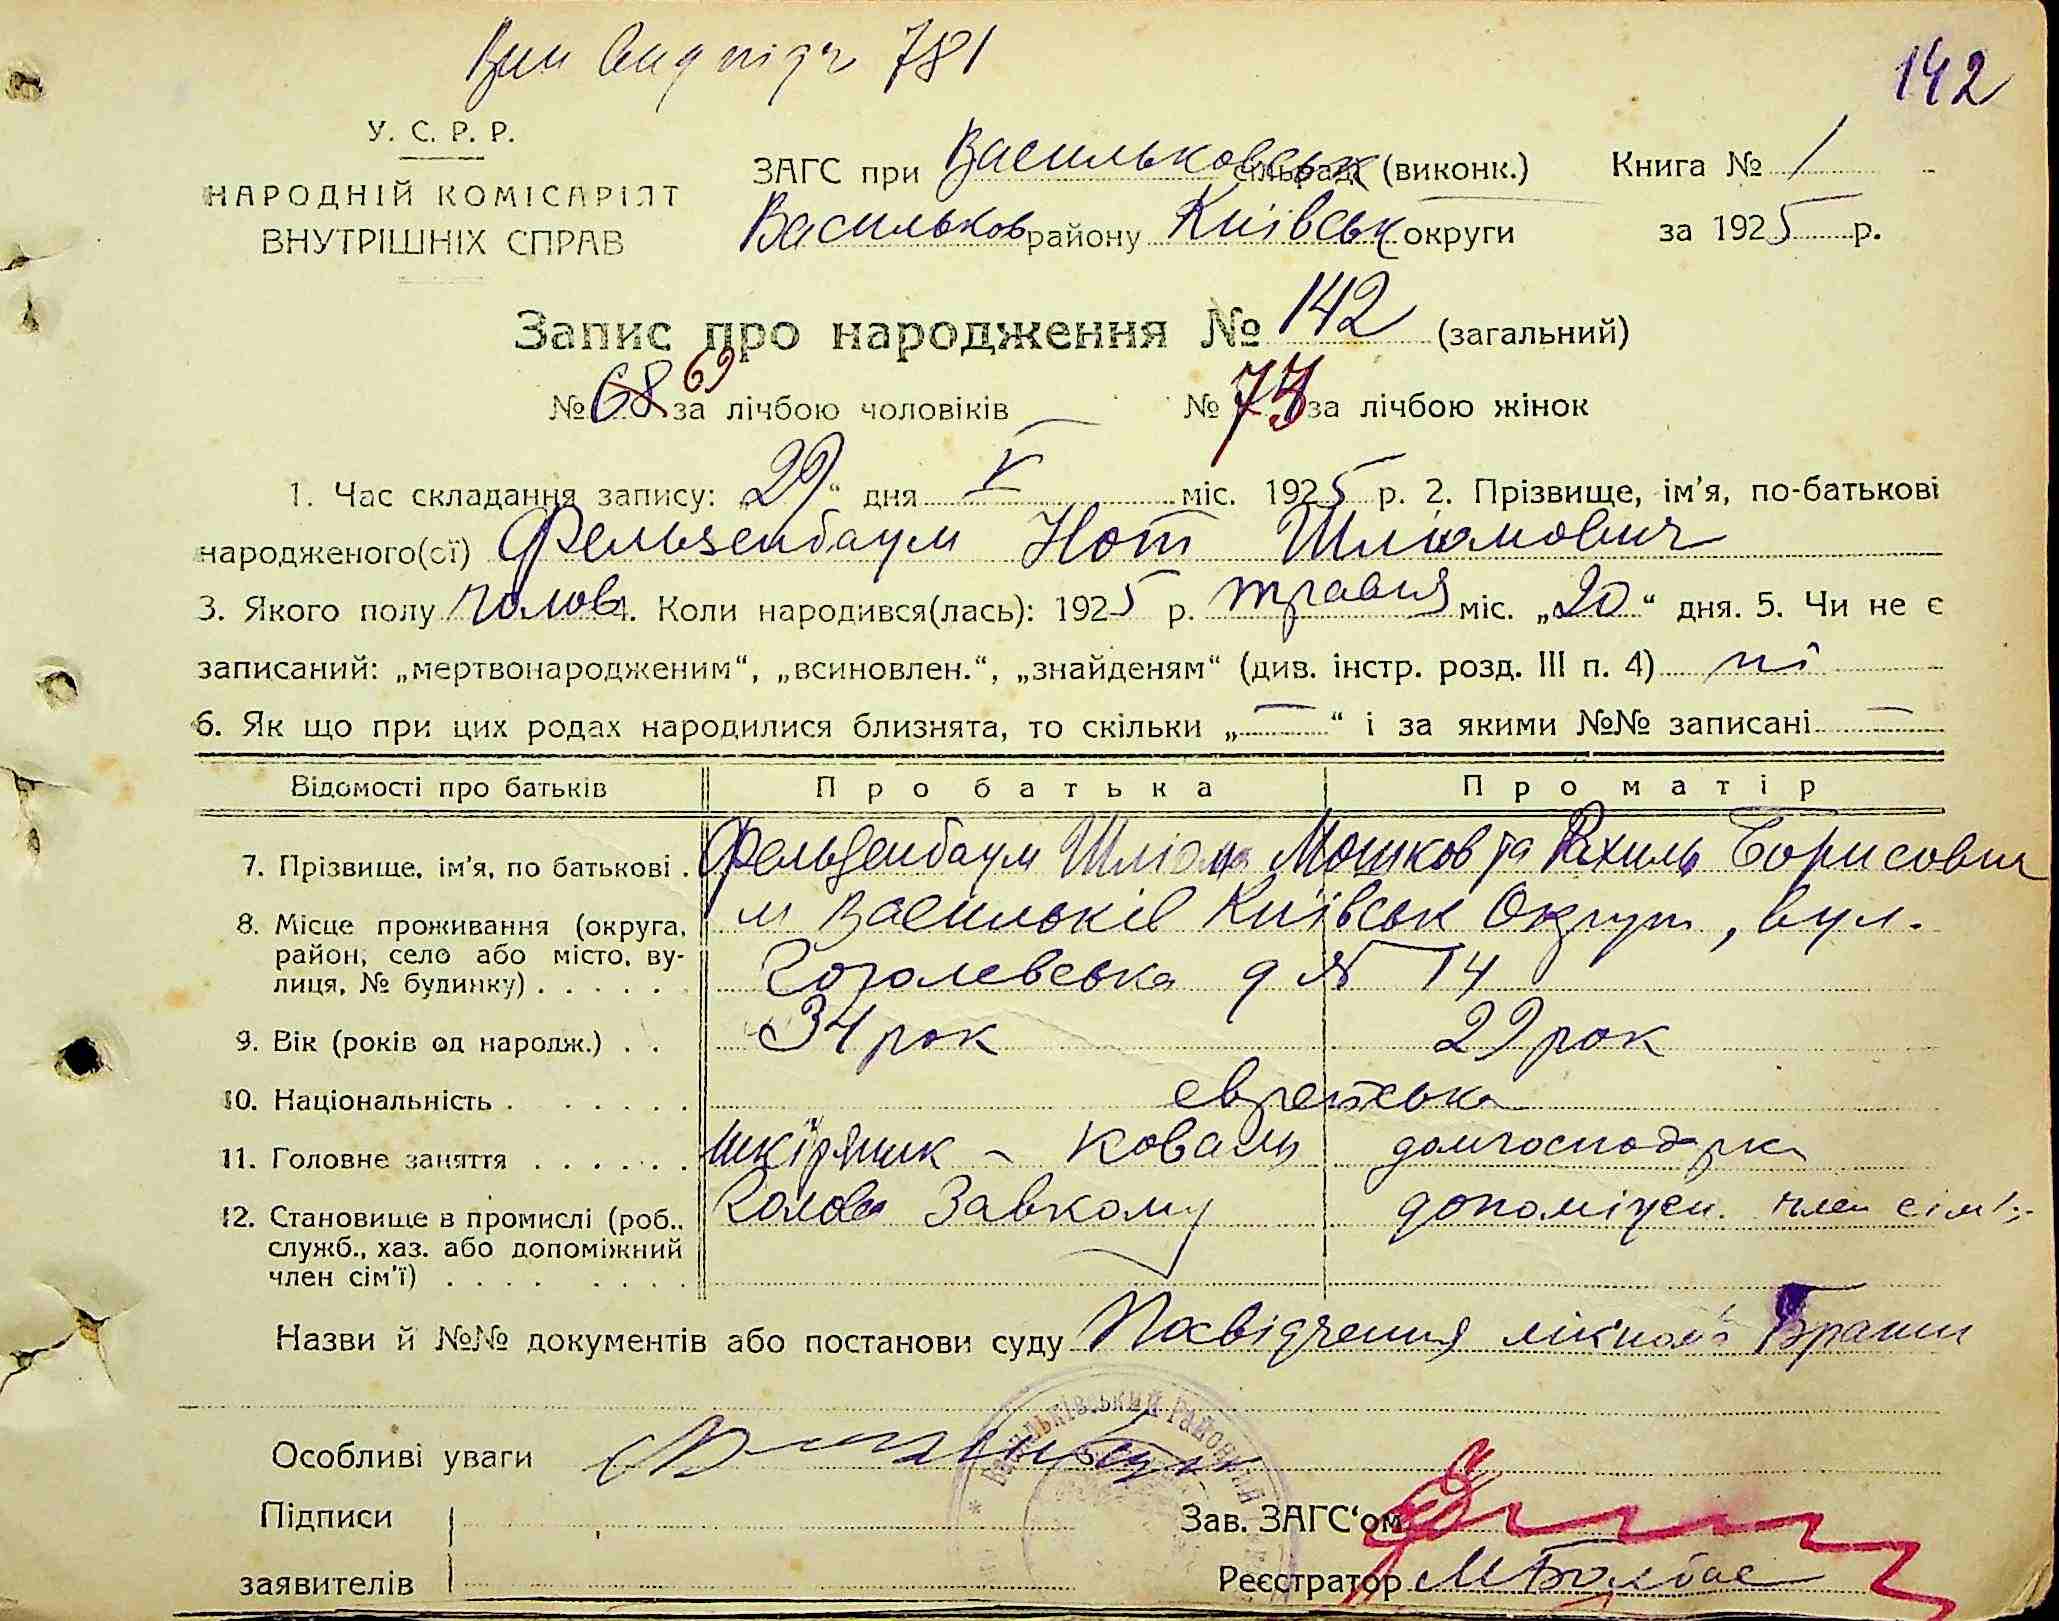 781
142
У. С. Р. Р.
НАРОДНІЙ КОМІСАРІЯТ
ВНУТРІШНІХ СПРАВ
ЗАГС при Васильковськ сільраді (виконк.) Книга № 1
Васильков району Київськ округи за 1925 р.
Запис про народження № 142 (загальний)
№ 68 69 за лічбою чоловіків — № 73 за лічбою жінок
1. Час складання запису: „29“ дня V міс. 1925 р. 2. Прізвище, ім’я, по-батькові
народженого(ої) Фельзенбаум Нот Шліомович
3. Якого полу чолов 4. Коли народився(лась): 1925 р. травня міс. „20“ дня. 5. Чи не є
записаний: „мертвонародженим“, „всиновлен.“, „знайденям“ (див. інстр. розд. III п. 4) ні
6. Як що при цих родах народилися близнята, то скільки „—“ і за якими №№ записані —
Відомості про батьків Про батька Про матір
7. Прізвище, ім’я, по батькові . Фельзенбаум Шліома Мошков та Рахиль Борисовна
8. Місце проживання (округа, м Васильків Київськ Округи, вул.
район, село або місто, ву-
лиця, № будинку) . . . . . . Гоголевська д № 14
9. Вік (років од народж.) . . 34 рок 29 рок
10. Національність . . . . . . . еврейська
11. Головне заняття . . . . . . шкіряник - коваль домгосподарка
12. Становище в промислі (роб., Голова Завкому допоміжн. член сім'ї
служб., хаз. або допоміжний
член сім’ї) . . . . . . . .
Назви й №№ документів або постанови суду Посвідчення лікаря
Особливі уваги
ВАСИЛЬКІВСЬКИЙ РАЙОННИЙ
Підписи Зав. ЗАГС‘ом
заявителів Реєстратор